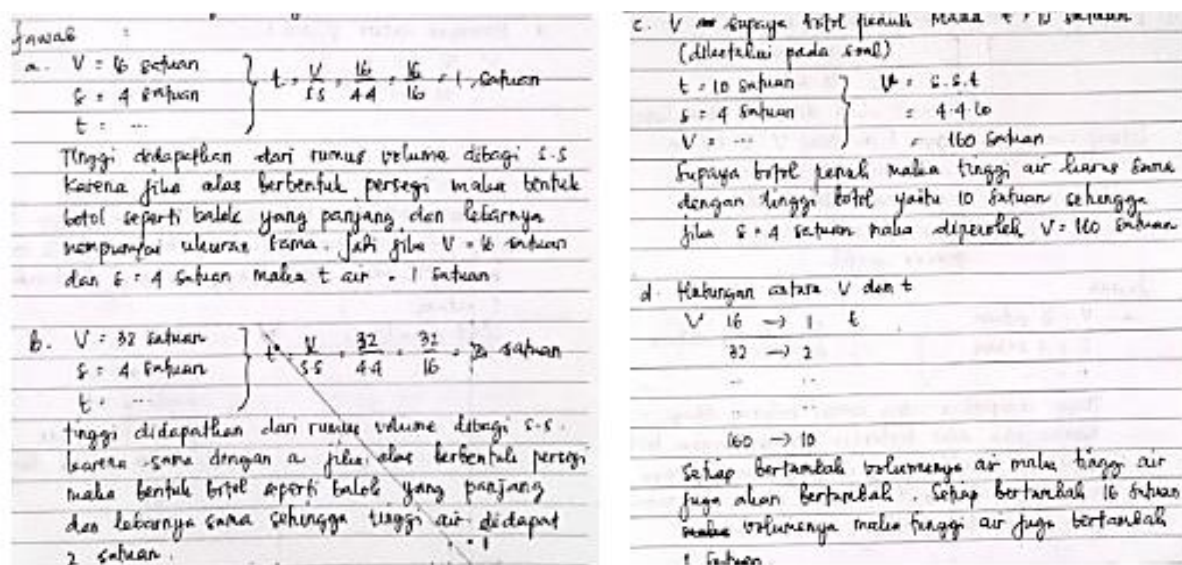 Jawab :
a. V = 16 satuan
s = 4 satuan
t = ...
t = V/s.s = 16/4.4 = 16/16 = 1 satuan
Tinggi didapatkan dari rumus volume dibagi s.s
karena jika alas berbentuk persegi maka bentuk
botol seperti balok yang panjang dan lebarnya
mempunyai ukuran sama. Jadi jika V = 16 satuan
dan s = 4 satuan maka t air = 1 satuan
b. V = 32 satuan
s = 4 satuan
t = ...
t = V/s.s = 32/4.4 = 32/16 = 2 satuan
tinggi didapatkan dari rumus volume dibagi s.s.
karena sama dengan a jika alas berbentuk persegi
maka bentuk botol seperti balok yang panjang
dan lebarnya sama sehingga tinggi air didapat
2 satuan.
c. V supaya botol penuh maka t = 10 satuan
(diketahui pada soal)
t = 10 satuan
s = 4 satuan
V = ...
V = s.s.t
= 4.4.10
= 160 satuan
Supaya botol penuh maka tinggi air harus sama
dengan tinggi botol yaitu 10 satuan sehingga
jika s = 4 satuan maka diperoleh V = 160 satuan
d. Hubungan antara V dan t
V 16 → 1 t
32 → 2
.. ..
.. ..
160 → 10
Setiap bertambah volumenya air maka tinggi air
juga akan bertambah. Setiap bertambah 16 satuan
volumenya maka tinggi air juga bertambah
1 satuan.